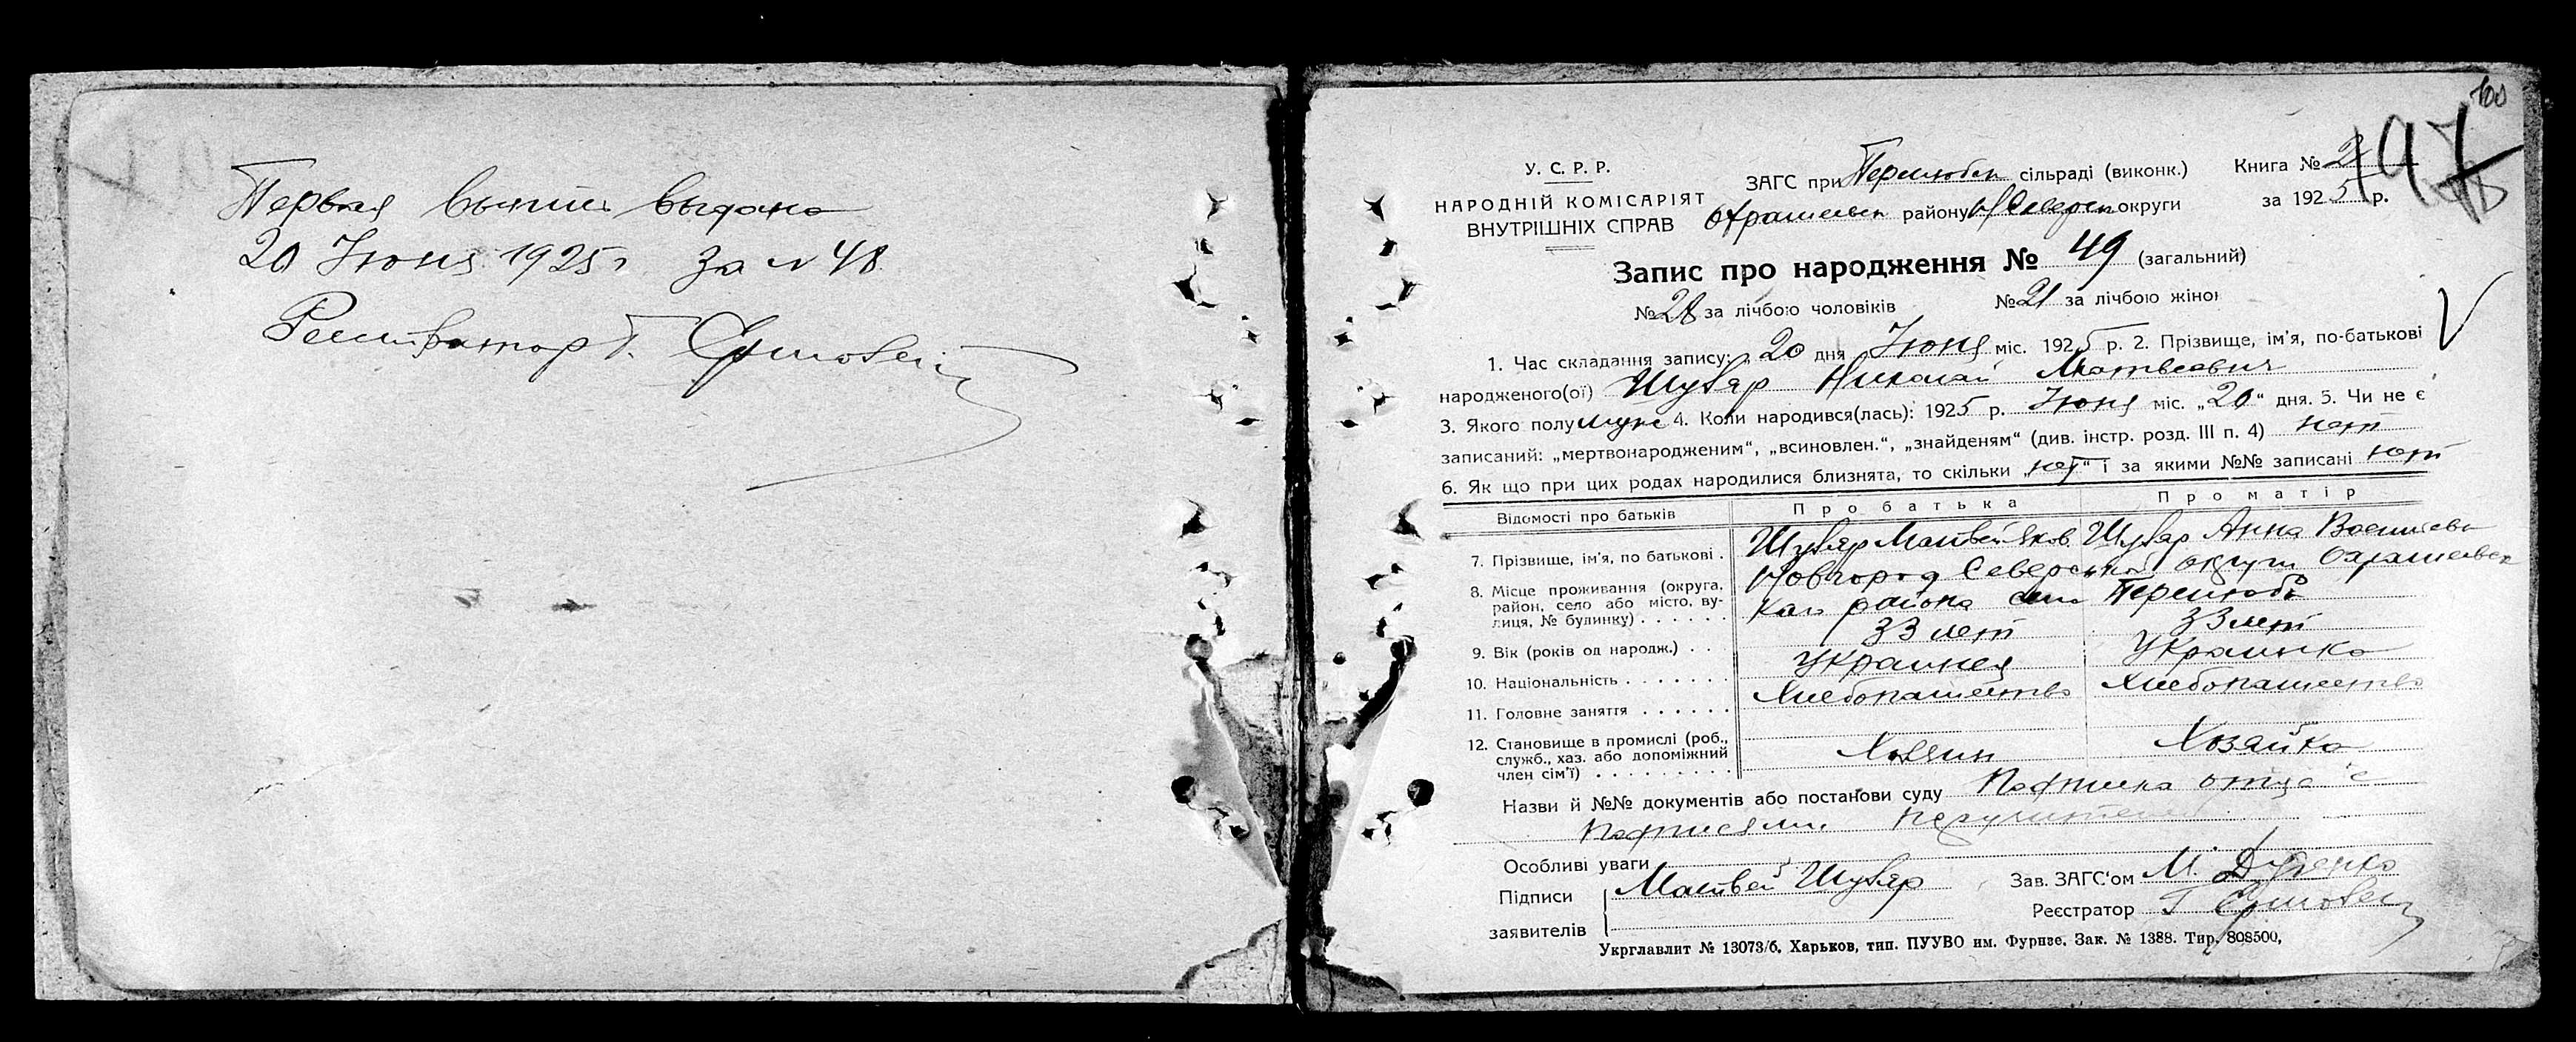 Первая выпись выдана
20 Июня 1925 г за № 48
Регистратор Г.
100
197
У. С. Р. Р.
НАРОДНІЙ КОМІСАРІЯТ
ВНУТРІШНІХ СПРАВ
ЗАГС при Перелюбск сільраді (виконк.)
району Н Северск округи
Книга № 2
за 1925 р.
Запис про народження № 49 (загальний)
№ 28 за лічбою чоловіків № 21 за лічбою жінок
1. Час складання запису: „20 дня Июня міс. 1925 р. 2. Прізвище, ім'я, по-батькові
народженого(ої) Шуваяр Николай Матвеевич
3. Якого полу муж 4. Коли народився(лась): 1925 р. Июня міс. „20“ дня. 5. Чи не є
записаний: „мертвонародженим“, „всиновлен.“, „знайденям“ (див. інстр. розд. III п. 4) нет
6. Як що при цих родах народилися близнята, то скільки „нет“ і за якими №№ записані нет
Відомості про батьків Про батька Про матір
7. Прізвище, ім'я, по батькові . Шуваяр Матвей Яков Шуваяр Анна Васильевн
8. Місце проживання (округа, район, село або місто, вулиця, № булинку) . . . . . . Новгород Северской округи
района село Перелюба
9. Вік (років од народж.) . . 33 лет 33 лет
10. Національність . . . . . . . Украинец Украинка
11. Головне заняття . . . . . . Хлебопашество Хлебопашество
12. Становище в промислі (роб., служб., хаз. або допоміжний член сім'ї) . . . . . . . . . Хозяин Хозяйка
Назви й №№ документів або постанови суду Подписка отца с
подписями поручителей
Особливі уваги
Підписи заявителів Матвей Шуваяр
Зав. ЗАГС'ом М.
Реєстратор Г
Укрглавлит № 13073/б. Харьков, тип. ПУУВО им. Фрунзе. Зак. № 1388. Тир. 808500,